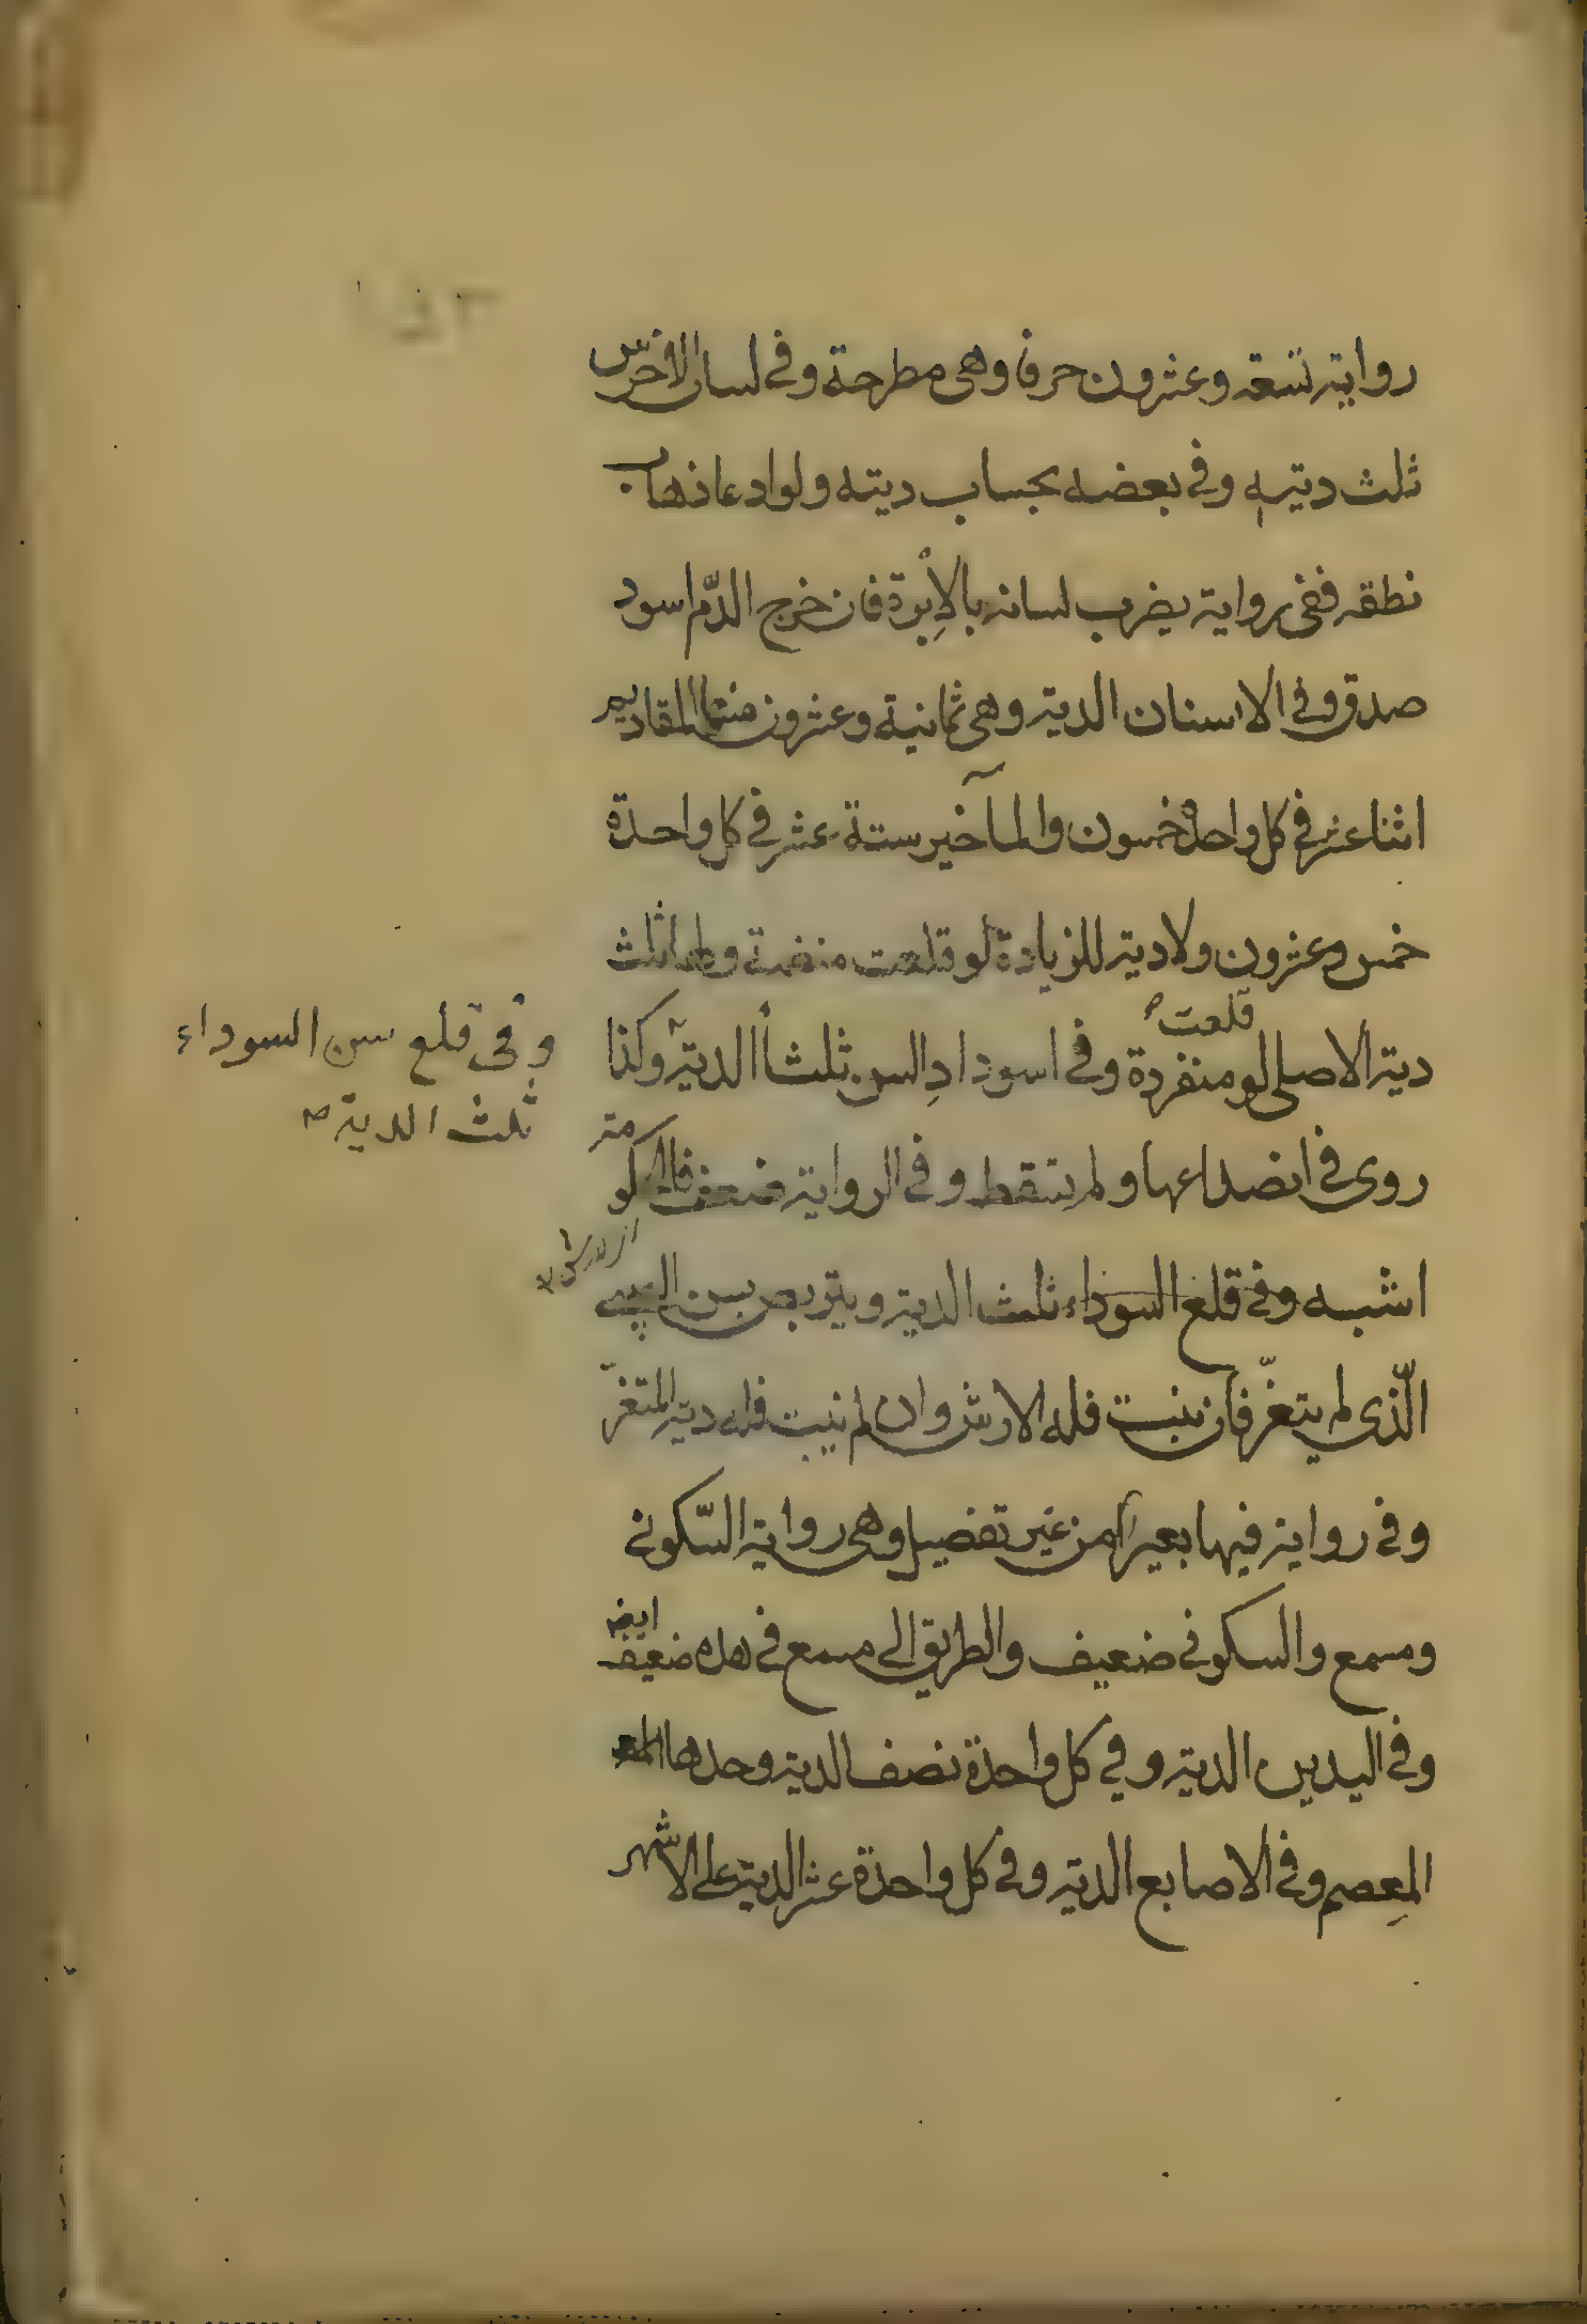 رواية تسعة وعشرون حرفا وهى مطرحة وفى لسان الاخرس
ثلث ديته وفى بعضه بحساب ديته ولو ادعا ذهاب
نطقه ففى رواية يضرب لسانه بالإبرة فان خرج الدّم اسود
صدق وفى الاسنان الدية وهى ثمانية وعشرون منها المقاديم
اثنا عشر فى كل واحدة خمسون والمآخير ستة عشر فى كل واحدة
خمس وعشرون ولا دية للزيادة لو قلعت منضمة ولها ثلث
قلعت
دية الاصلى لو منفردة وفى اسودادِ السن ثلثا الدية وكذا
وفى قلع سن السوداء
ثلث الدية
روى فى انصداعها ولم تسقط وفى الرواية ضعف فالحكومة
اشبه وفى قلع السوداء ثلث الدية ويتربص بسن الصبى
الّذى لم يتغرّ فان نبت فله الارش وان لم ينبت فله دية المتغرّ
وفى رواية فيها بعير من غير تفصيل وهى رواية السّكونى
ومسمع والسكونى ضعيف والطريق الى مسمع فى هذه ضعيف
ايضا
وفى اليدين الدية وفى كل واحدة نصف الدية وحدها
المِعصم وفى الاصابع الدية وفى كل واحدة عشر الدية على الاشهر